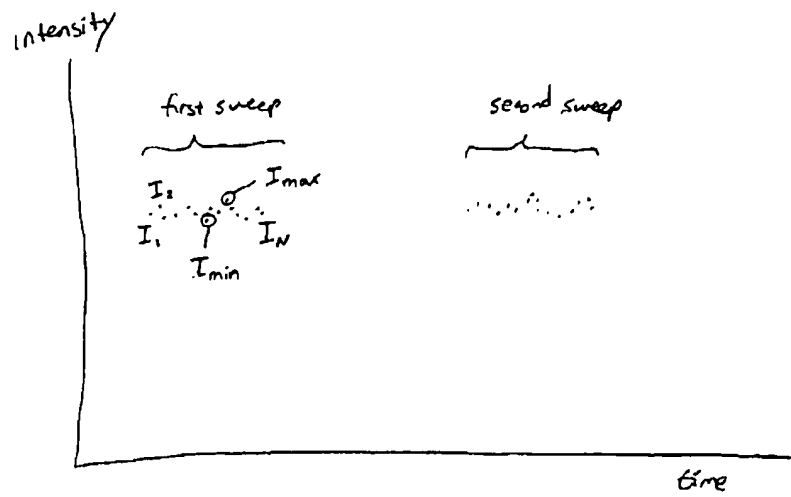 intensity
first sweep
second sweep
I₂
Imax
I₁
IN
Imin
time